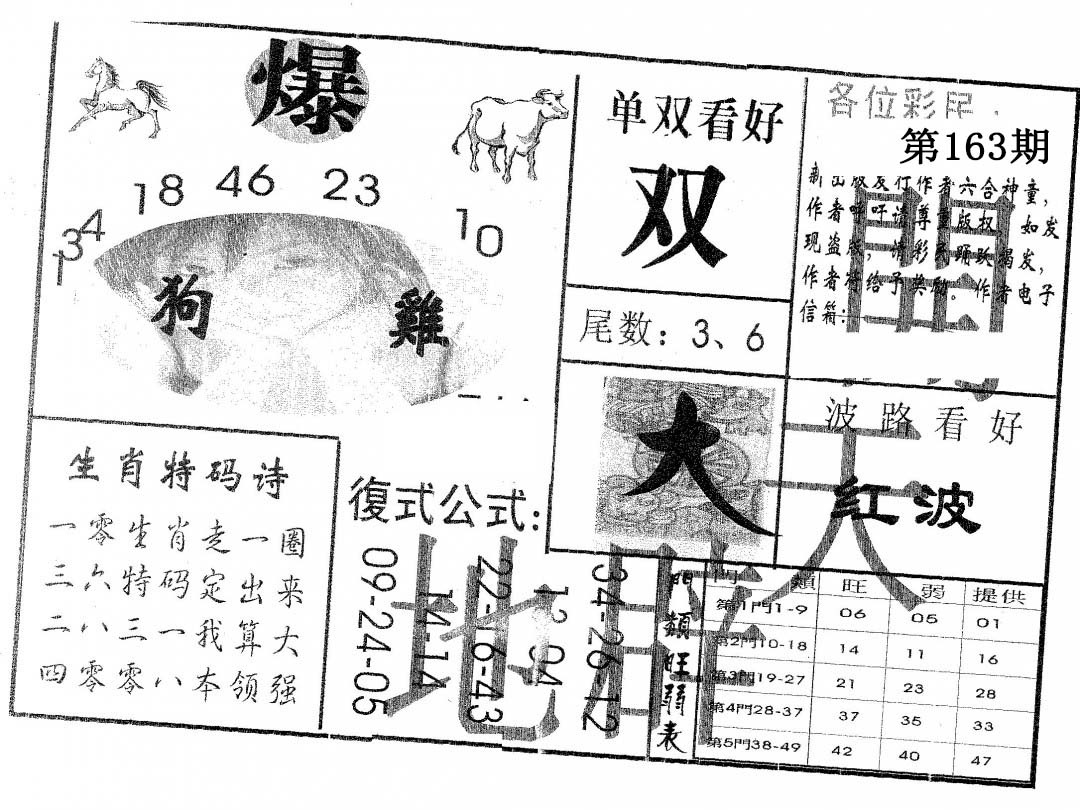 爆
18 46 23
10
34
1
狗 雞
单双看好
双
尾数：3、6
各位彩民
第163期
新出版及作者六合神童，
作者呼吁请尊重版权，如发
现盗版，请彩民踊跃揭发，
作者将给予奖励。作者电子
信箱：
大
波路看好
红波
生肖特码诗
一零生肖走一圈
三六特码定出来
二八三一我算大
四零零八本领强
復式公式：
09-24-05
14-14
22-16-43
12-04
34-26-12
門類旺弱表
門 類 旺 弱 提供
第1門1-9 06 05 01
第2門10-18 14 11 16
第3門19-27 21 23 28
第4門28-37 37 35 33
第5門38-49 42 40 47